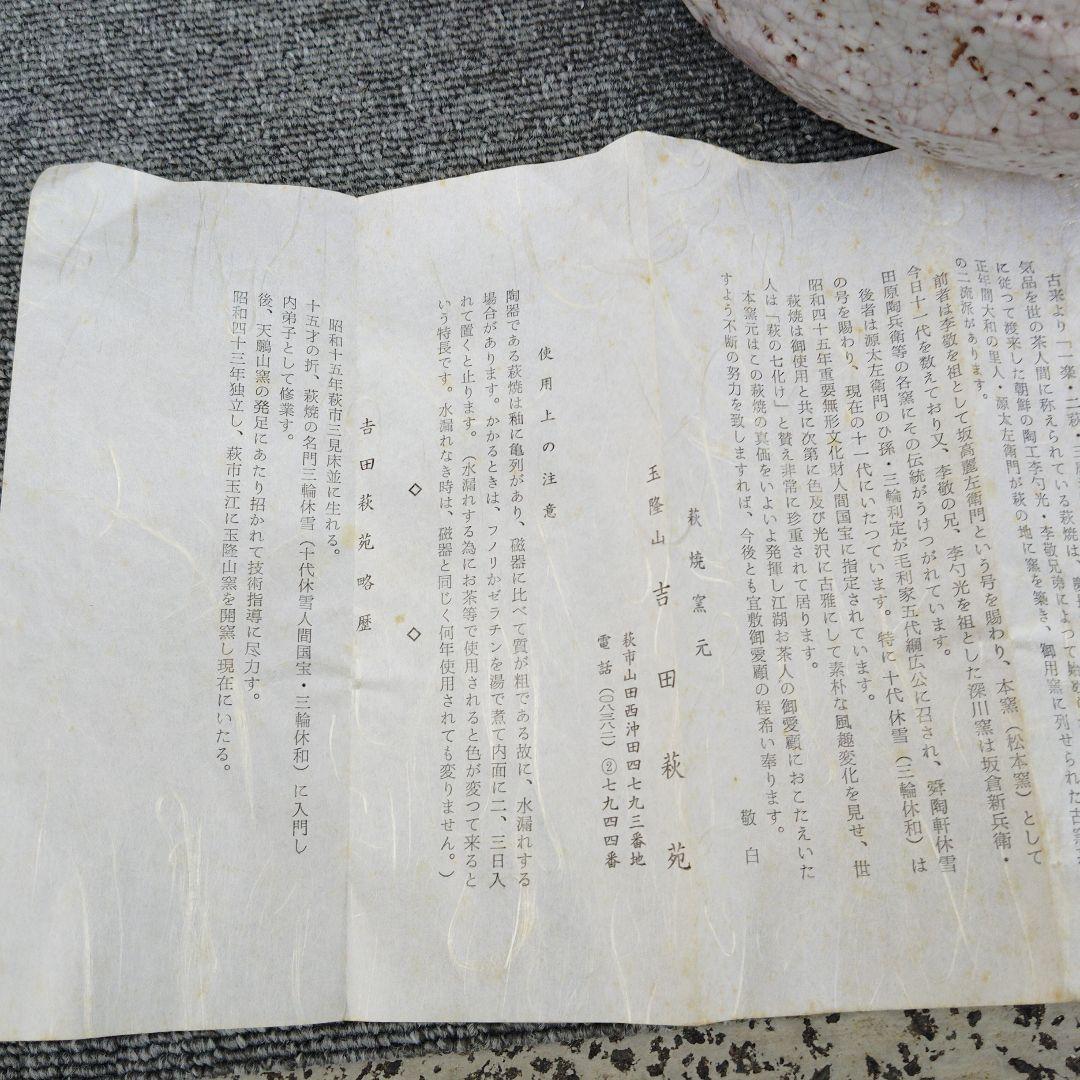 古来より「一楽・二萩・三唐
気品を世の茶人間に称えられている萩焼は、
に従つて渡来した朝鮮の陶工李勺光・李敬兄弟によつて始め
正年間大和の里人・源太左衛門が萩の地に窯を築き、御用窯に列せられた古窯
の二流派があります。
前者は李敬を祖として坂高麗左衛門という号を賜わり、本窯（松本窯）として
今日十一代を数えており又、李敬の兄、李勺光を祖とした深川窯は坂倉新兵衛・
田原陶兵衛等の各窯にその伝統がうけつがれています。
後者は源太左衛門のひ孫・三輪利定が毛利家五代綱広公に召され、舜陶軒休雪
の号を賜わり、現在の十一代にいたつています。特に十代休雪（三輪休和）は
昭和四十五年重要無形文化財人間国宝に指定されています。
萩焼は御使用と共に次第に色及び光沢に古雅にして素朴な風趣変化を見せ、世
人は「萩の七化け」と賛え非常に珍重されて居ります。
本窯元はこの萩焼の真価をいよいよ発揮し江湖お茶人の御愛顧におこたえいた
すよう不断の努力を致しますれば、今後とも宜敷御愛顧の程希い奉ります。
敬白
萩焼窯元
玉隆山 吉田萩苑
萩市山田西沖田四七九三番地
電話（〇八三八二）②七九四四番
使用上の注意
陶器である萩焼は釉に亀列があり、磁器に比べて質が粗である故に、水漏れする
場合があります。かかるときは、フノリかゼラチンを湯で煮て内面に二、三日入
れて置くと止ります。（水漏れする為にお茶等で使用されると色が変つて来ると
いう特長です。水漏れなき時は、磁器と同じく何年使用されても変りません。）
◇ ◇
吉田萩苑略歴
昭和十五年萩市三見床並に生れる。
十五才の折、萩焼の名門三輪休雪（十代休雪人間国宝・三輪休和）に入門し
内弟子として修業す。
後、天鵬山窯の発足にあたり招かれて技術指導に尽力す。
昭和四十三年独立し、萩市玉江に玉隆山窯を開窯し現在にいたる。